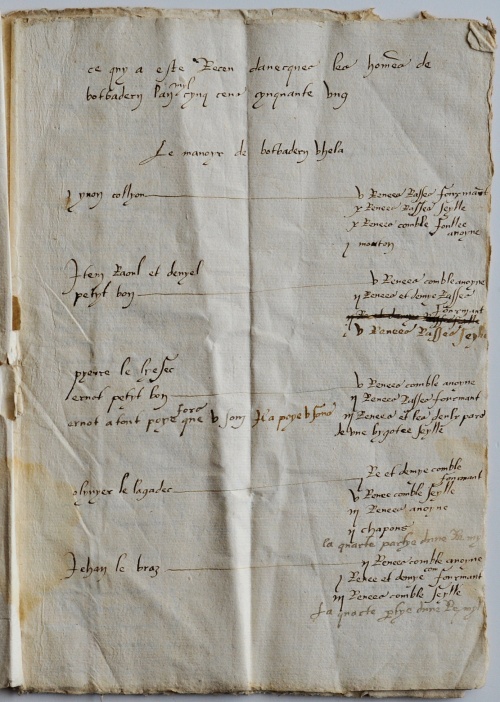 ce quy a este Receu danecques les homes de
botbadern lan mil cynq cens cynquante ung
Le manoyr de botbadern Uhela
yvon collyou
v Renees Rasses fourmant
x Renees Rasses seylle
x Renees comble foullee
avoyne
j mouton
Item Raoul et denyel
petyt bon
v Renees comble avoyne
ij Renees et demye Rasses
fourmant
v Renees Rasses seylle
pyerre le
ernot petyt bon
ernot a tout poye fors que v soulz Il a poye
v Renees comble avoyne
ij Renees Rasses fourmant
iij Renees et les deulx pars
de une seylle
olyvyer le lagadec
j Re et demye comble
fourmant
v Renee comble seylle
iij Renees avoyne
ij chapons
la quarte partye dune Re
Jehan le braz
ij Renees comble avoyne
j Renee et demye com fourmant
iij Renees comble seylle
la quarte ptye dune Re